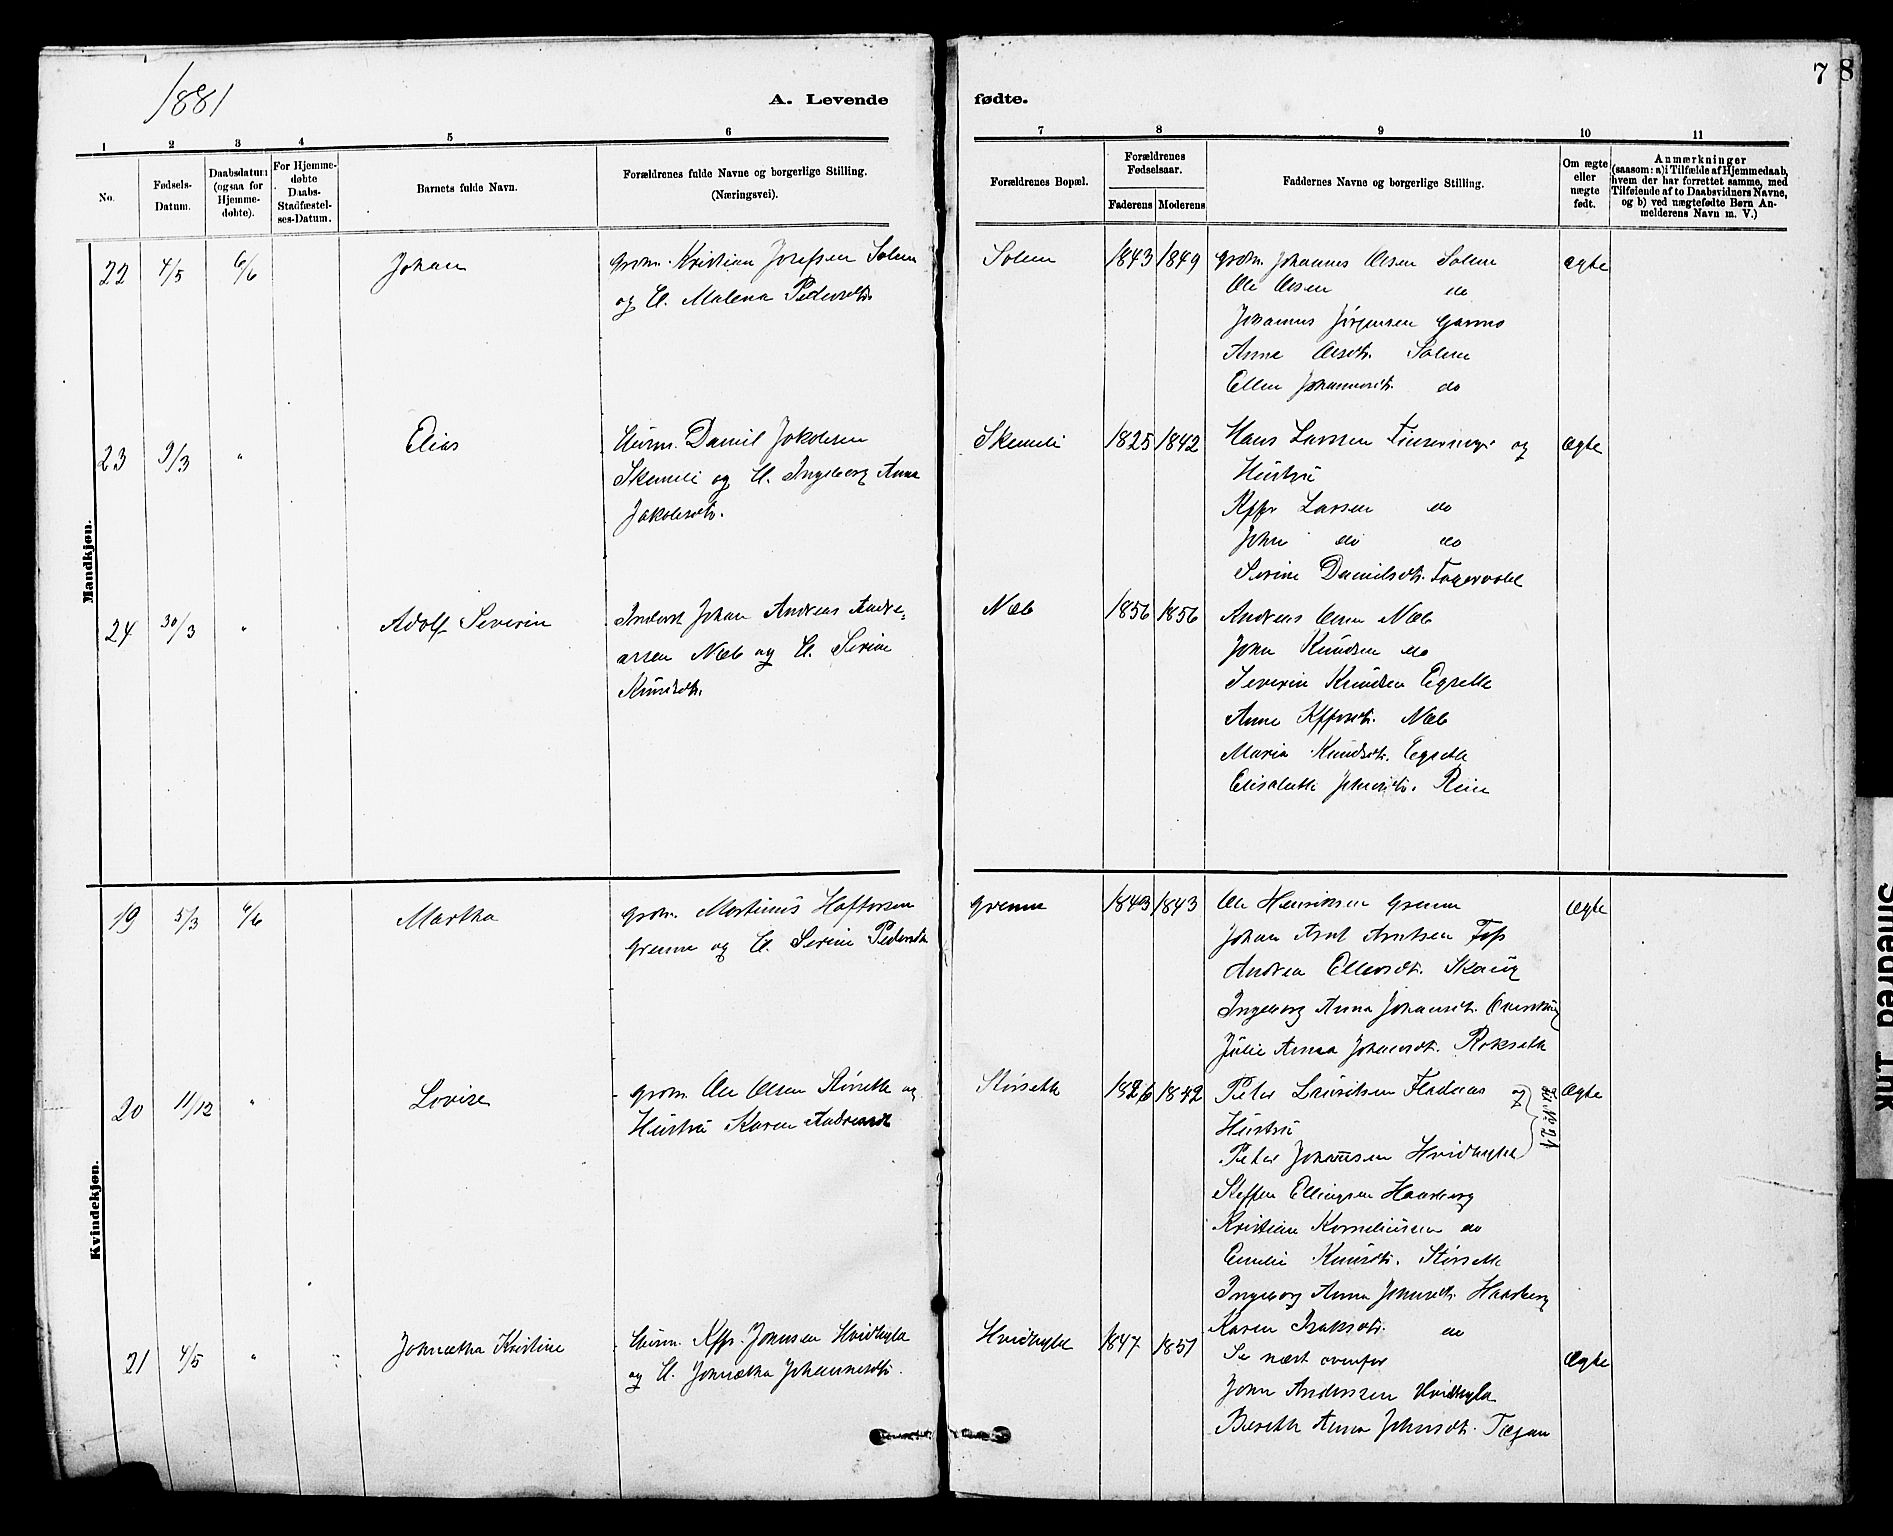 1881
A. Levende fødte.
7 8
1 2 3 4 5 6 7 8 9 10 11
No.
Fødsels-Datum.
Daabsdatum (ogsaa for Hjemmedøbte).
For Hjemmedøbte Daabs-Stadfæstelses-Datum.
Barnets fulde Navn.
Forældrenes fulde Navne og borgerlige Stilling.
(Næringsvei).
Forældrenes Bopæl.
Forældrenes Fødselsaar.
Faderens Moderens
Faddernes Navne og borgerlige Stilling.
Om ægte eller nægte født.
Anmærkninger
(saasom: a) i Tilfælde af Hjemmedaab,
hvem der har forrettet samme, med
Tilføiende af to Daabsvidners Navne,
og b) ved nægtefødte Børn Anmelderens Navn m. V.)
Mandkjøn.
22 4/5 6/6 Johan
Grdm. Kristian Josefsen Solem
og H. Malena Pedersdtr.
Solem 1843 1849
Grdm. Johannes Olsen Solem
Ole Olsen do
Johannes Jørgensen Garmo
Anne Olsdtr. Solem
Ellen Johannesdtr. do
ægte
23 9/3 " Elias
Husm. Daniel Jakobsen
Skemeli og H. Ingeborg Anna
Jakobsdtr.
Skemeli 1825 1842
Hans Larssen og
Hustru
Larsen do
John do do
Serine Danielsdtr. Fagervold
Ægte
24 30/3 " Adolf Severin
Inderst Johan Andreas Andre-
assen Næb og H. Serine
Knudsdtr.
Næb 1856 1856
Andreas Olsen Næb
John Knudsen do
Severin Knudsen Egsette
Anne Næb
Maria Knudsdtr. Egsette
Elisabeth Johnsdtr. Rein
Kvindekjøn.
19 5/3 6/6 Martha
Grdm. Martinus Haftorsen
Grenne og H. Serine Pedersdtr
Grenne 1843 1843
Ole Henriksen Grenne
Johan Arnt Arntsen Foss
Andrea Ellevsdtr. Skaug
Ingeborg Anna Johansdtr.
Julie Anna Johansdtr. Rokseth
Ægte
20 11/12 " Lovise
Grdm. Ole Olsen Størseth og
Hustru Karen Andreasdtr
Størseth 1826 1842
Peter Lauritsen Fladnas og
Hustru
Peter Johansen Hvidhyld
til No. 21
Steffen Ellingsen Haarberg
Kristian Korneliussen do
Emelie Knudsdtr. Størseth
Ingeborg Anna Johnsdtr. Haarberg
Karen Isaksdtr. do
Ægte
21 4/5 " Johnetha Kristine
Husm. Kffr. Johnsen Hvidhyld
og H. Johnetha Johannesdtr.
Hvidhyld 1847 1851
Se næst ovenfor
John Andersen Hvidhyld
Bereth Anna Johnsdtr.
Ægte
Smeared Ink